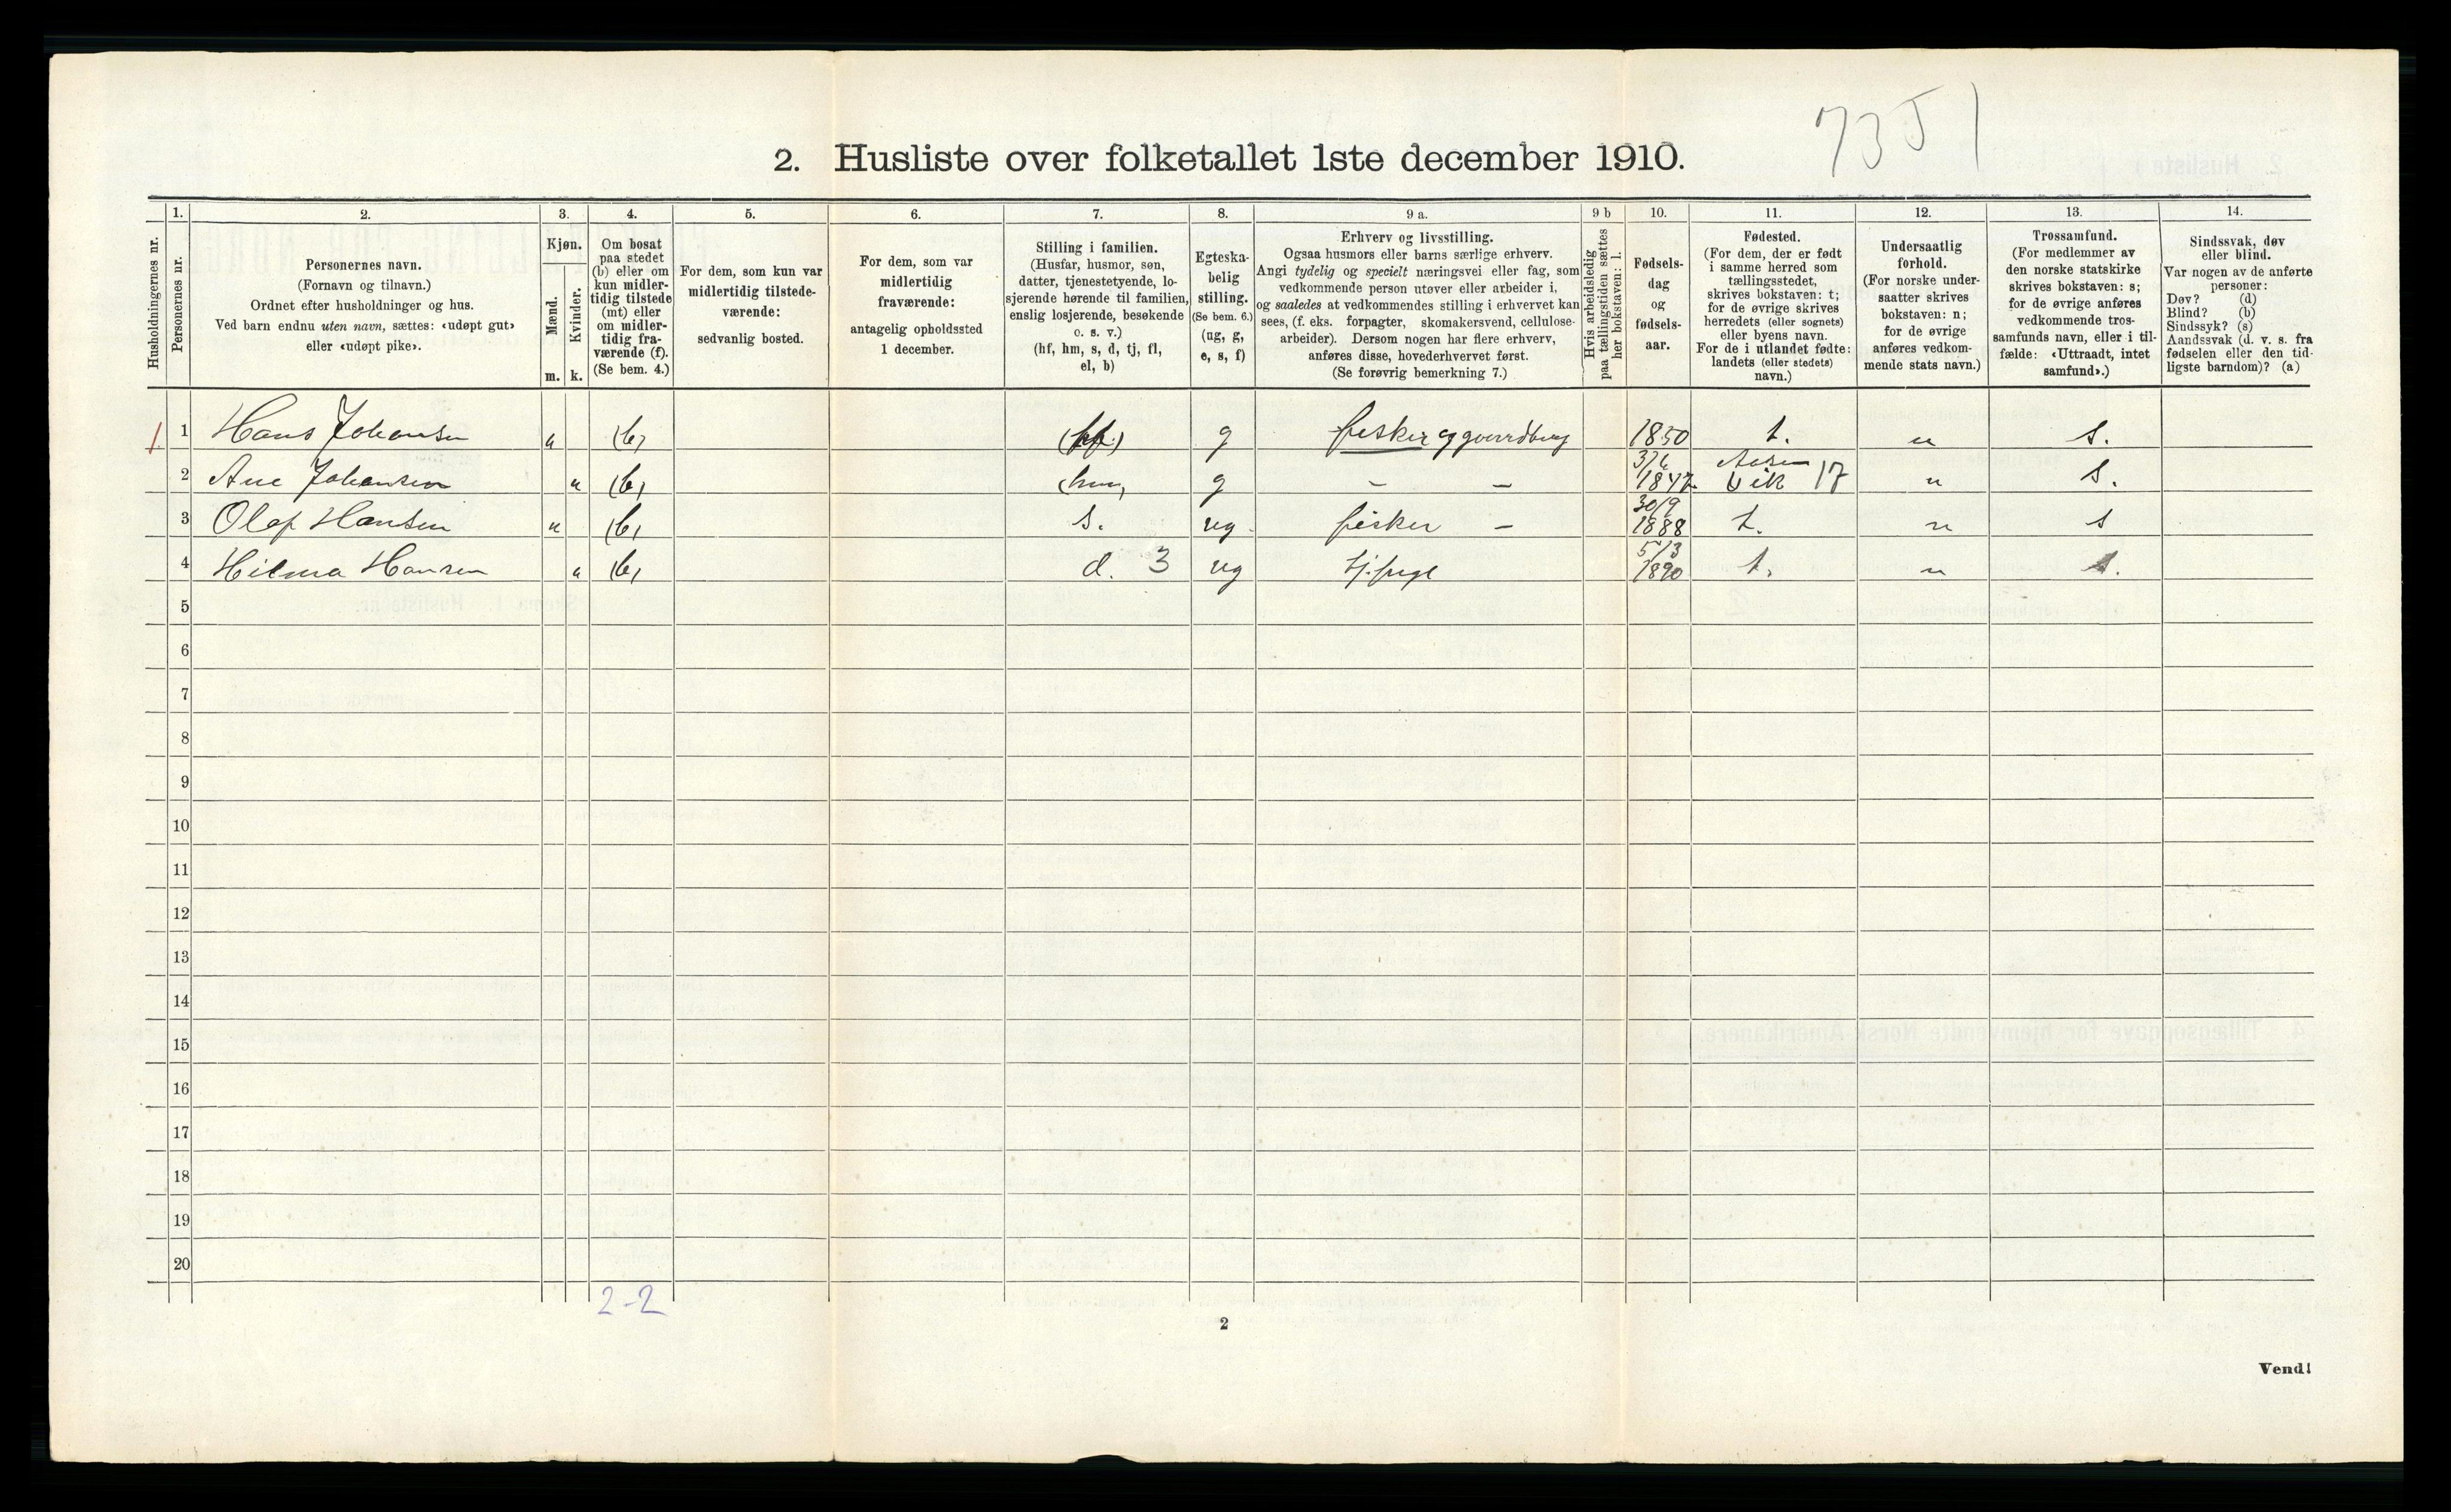 73 J 1
2. Husliste over folketallet 1ste december 1910.
Husholdningernes nr.
1. Personernes nr.
2. Personernes navn.
(Fornavn og tilnavn.)
Ordnet efter husholdninger og hus.
Ved barn endnu uten navn, sættes: «udøpt gut»
eller «udøpt pike».
3. Kjøn.
Mænd. Kvinder.
m. k.
4. Om bosat
paa stedet
(b) eller om
kun midler-
tidig tilstede
(mt) eller
om midler-
tidig fra-
værende (f).
(Se bem. 4.)
5. For dem, som kun var
midlertidig tilstede-
værende:
sedvanlig bosted.
6. For dem, som var
midlertidig
fraværende:
antagelig opholdssted
1 december.
7. Stilling i familien.
(Husfar, husmor, søn,
datter, tjenestetyende, lo-
sjerende hørende til familien,
enslig losjerende, besøkende
o. s. v.)
(hf, hm, s, d, tj, fl,
el, b)
8. Egteska-
belig
stilling.
(Se bem. 6.)
(ug, g,
e, s, f)
9 a. Erhverv og livsstilling.
Ogsaa husmors eller barns særlige erhverv.
Angi tydelig og specielt næringsvei eller fag, som
vedkommende person utøver eller arbeider i,
og saaledes at vedkommendes stilling i erhvervet kan
sees, (f. eks. forpagter, skomakersvend, cellulose-
arbeider). Dersom nogen har flere erhverv,
anføres disse, hovederhvervet først.
(Se forøvrig bemerkning 7.)
9 b Hvis arbeidsledig
paa tællingstiden sættes
her bokstaven: l.
10. Fødsels-
dag
og
fødsels-
aar.
11. Fødested.
(For dem, der er født
i samme herred som
tællingsstedet,
skrives bokstaven: t;
for de øvrige skrives
herredets (eller sognets)
eller byens navn.
For de i utlandet fødte:
landets (eller stedets)
navn.)
12. Undersaatlig
forhold.
(For norske under-
saatter skrives
bokstaven: n;
for de øvrige
anføres vedkom-
mende stats navn.)
13. Trossamfund.
(For medlemmer av
den norske statskirke
skrives bokstaven: s;
for de øvrige anføres
vedkommende tros-
samfunds navn, eller i til-
fælde: «Uttraadt, intet
samfund».)
14. Sindssvak, døv
eller blind.
Var nogen av de anførte
personer:
Døv? (d)
Blind? (b)
Sindssyk? (s)
Aandssvak (d. v. s. fra
fødselen eller den tid-
ligste barndom)? (a)
1 1 Hans Johansen (b) (hf.) g fisker og 1850 t. n s.
2 Ane Johansen (b) (hm) g - - 3/6 1847 Vik 17 n s.
3 Olaf Hansen (b) s. ug. fisker - 30/9 1888 t. n s
4 Hilma Hansen (b) d. 3 ug 5/3 1890 t. n s.
5
6
7
8
9
10
11
12
13
14
15
16
17
18
19
20
2-2
2
Vend!